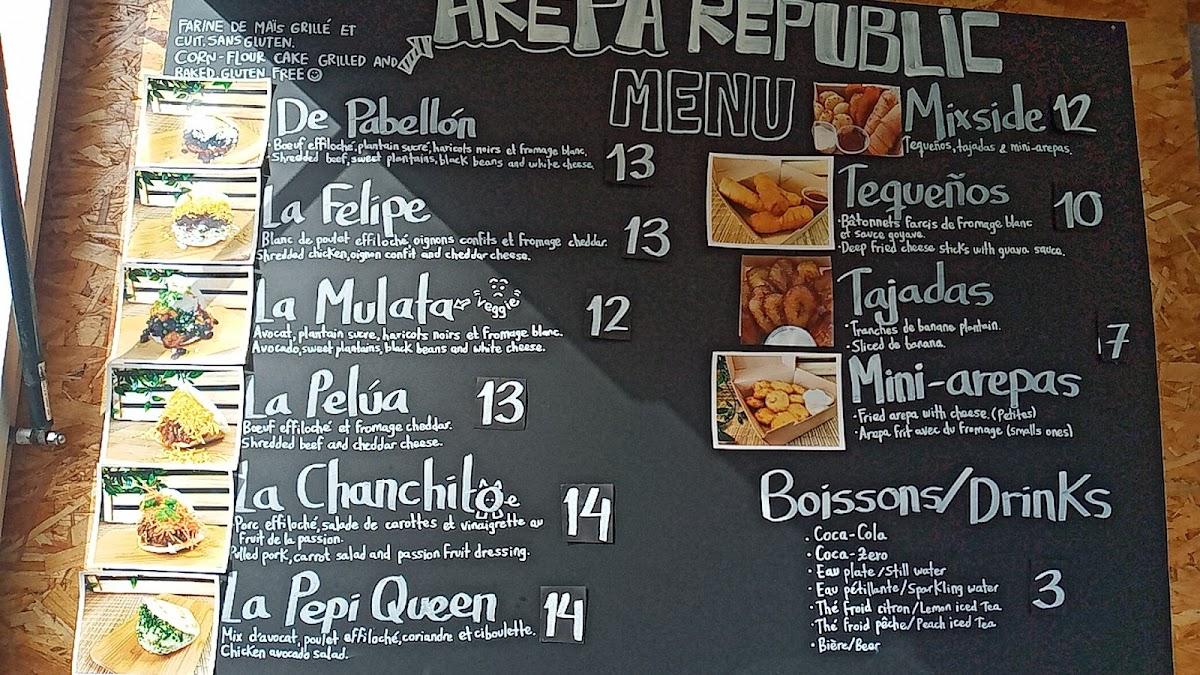 FARINE DE MAÏS GRILLÉ ET
CUIT. SANS GLUTEN.
CORN-FLOUR CAKE GRILLED AND
BAKED GLUTEN FREE
AREPA REPUBLIC
MENU
De Pabellón
Bœuf effiloché, plantain sucré, haricots noirs et fromage blanc.
Shredded beef, sweet plantains, black beans and white cheese.
13
La Felipe
Blanc de poulet effiloché, oignons confits et fromage cheddar.
Shredded chicken, oignon confit and cheddar cheese.
13
La Mulata
veggie
Avocat, plantain sucre, haricots noirs et fromage blanc.
Avocado, sweet plantains, black beans and white cheese.
12
La Pelúa
Bœuf effiloché et fromage cheddar.
Shredded beef and cheddar cheese.
13
La Chanchito
Porc effiloché, salade de carottes et vinaigrette au
fruit de la passion.
Pulled pork, carrot salad and passion fruit dressing.
14
La Pepi Queen
Mix d'avocat, poulet effiloché, coriandre et ciboulette.
Chicken avocado salad.
14
Mixside 12
Tequeños, tajadas & mini-arepas.
Tequeños
· Bâtonnets farcis de fromage blanc
et sauce goyave.
· Deep fried cheese sticks with guava sauce.
10
Tajadas
· Tranches de banane plantain.
· Sliced de banana.
7
Mini-arepas
· Fried arepa with cheese. (Petites)
· Arepa frit avec du fromage (smalls ones)
Boissons/Drinks
· Coca-Cola
· Coca-Zero
· Eau plate/Still water
· Eau pétillante/Sparkling water
· Thé froid citron/Lemon iced Tea
· Thé froid pêche/Peach iced Tea
· Bière/Beer
3